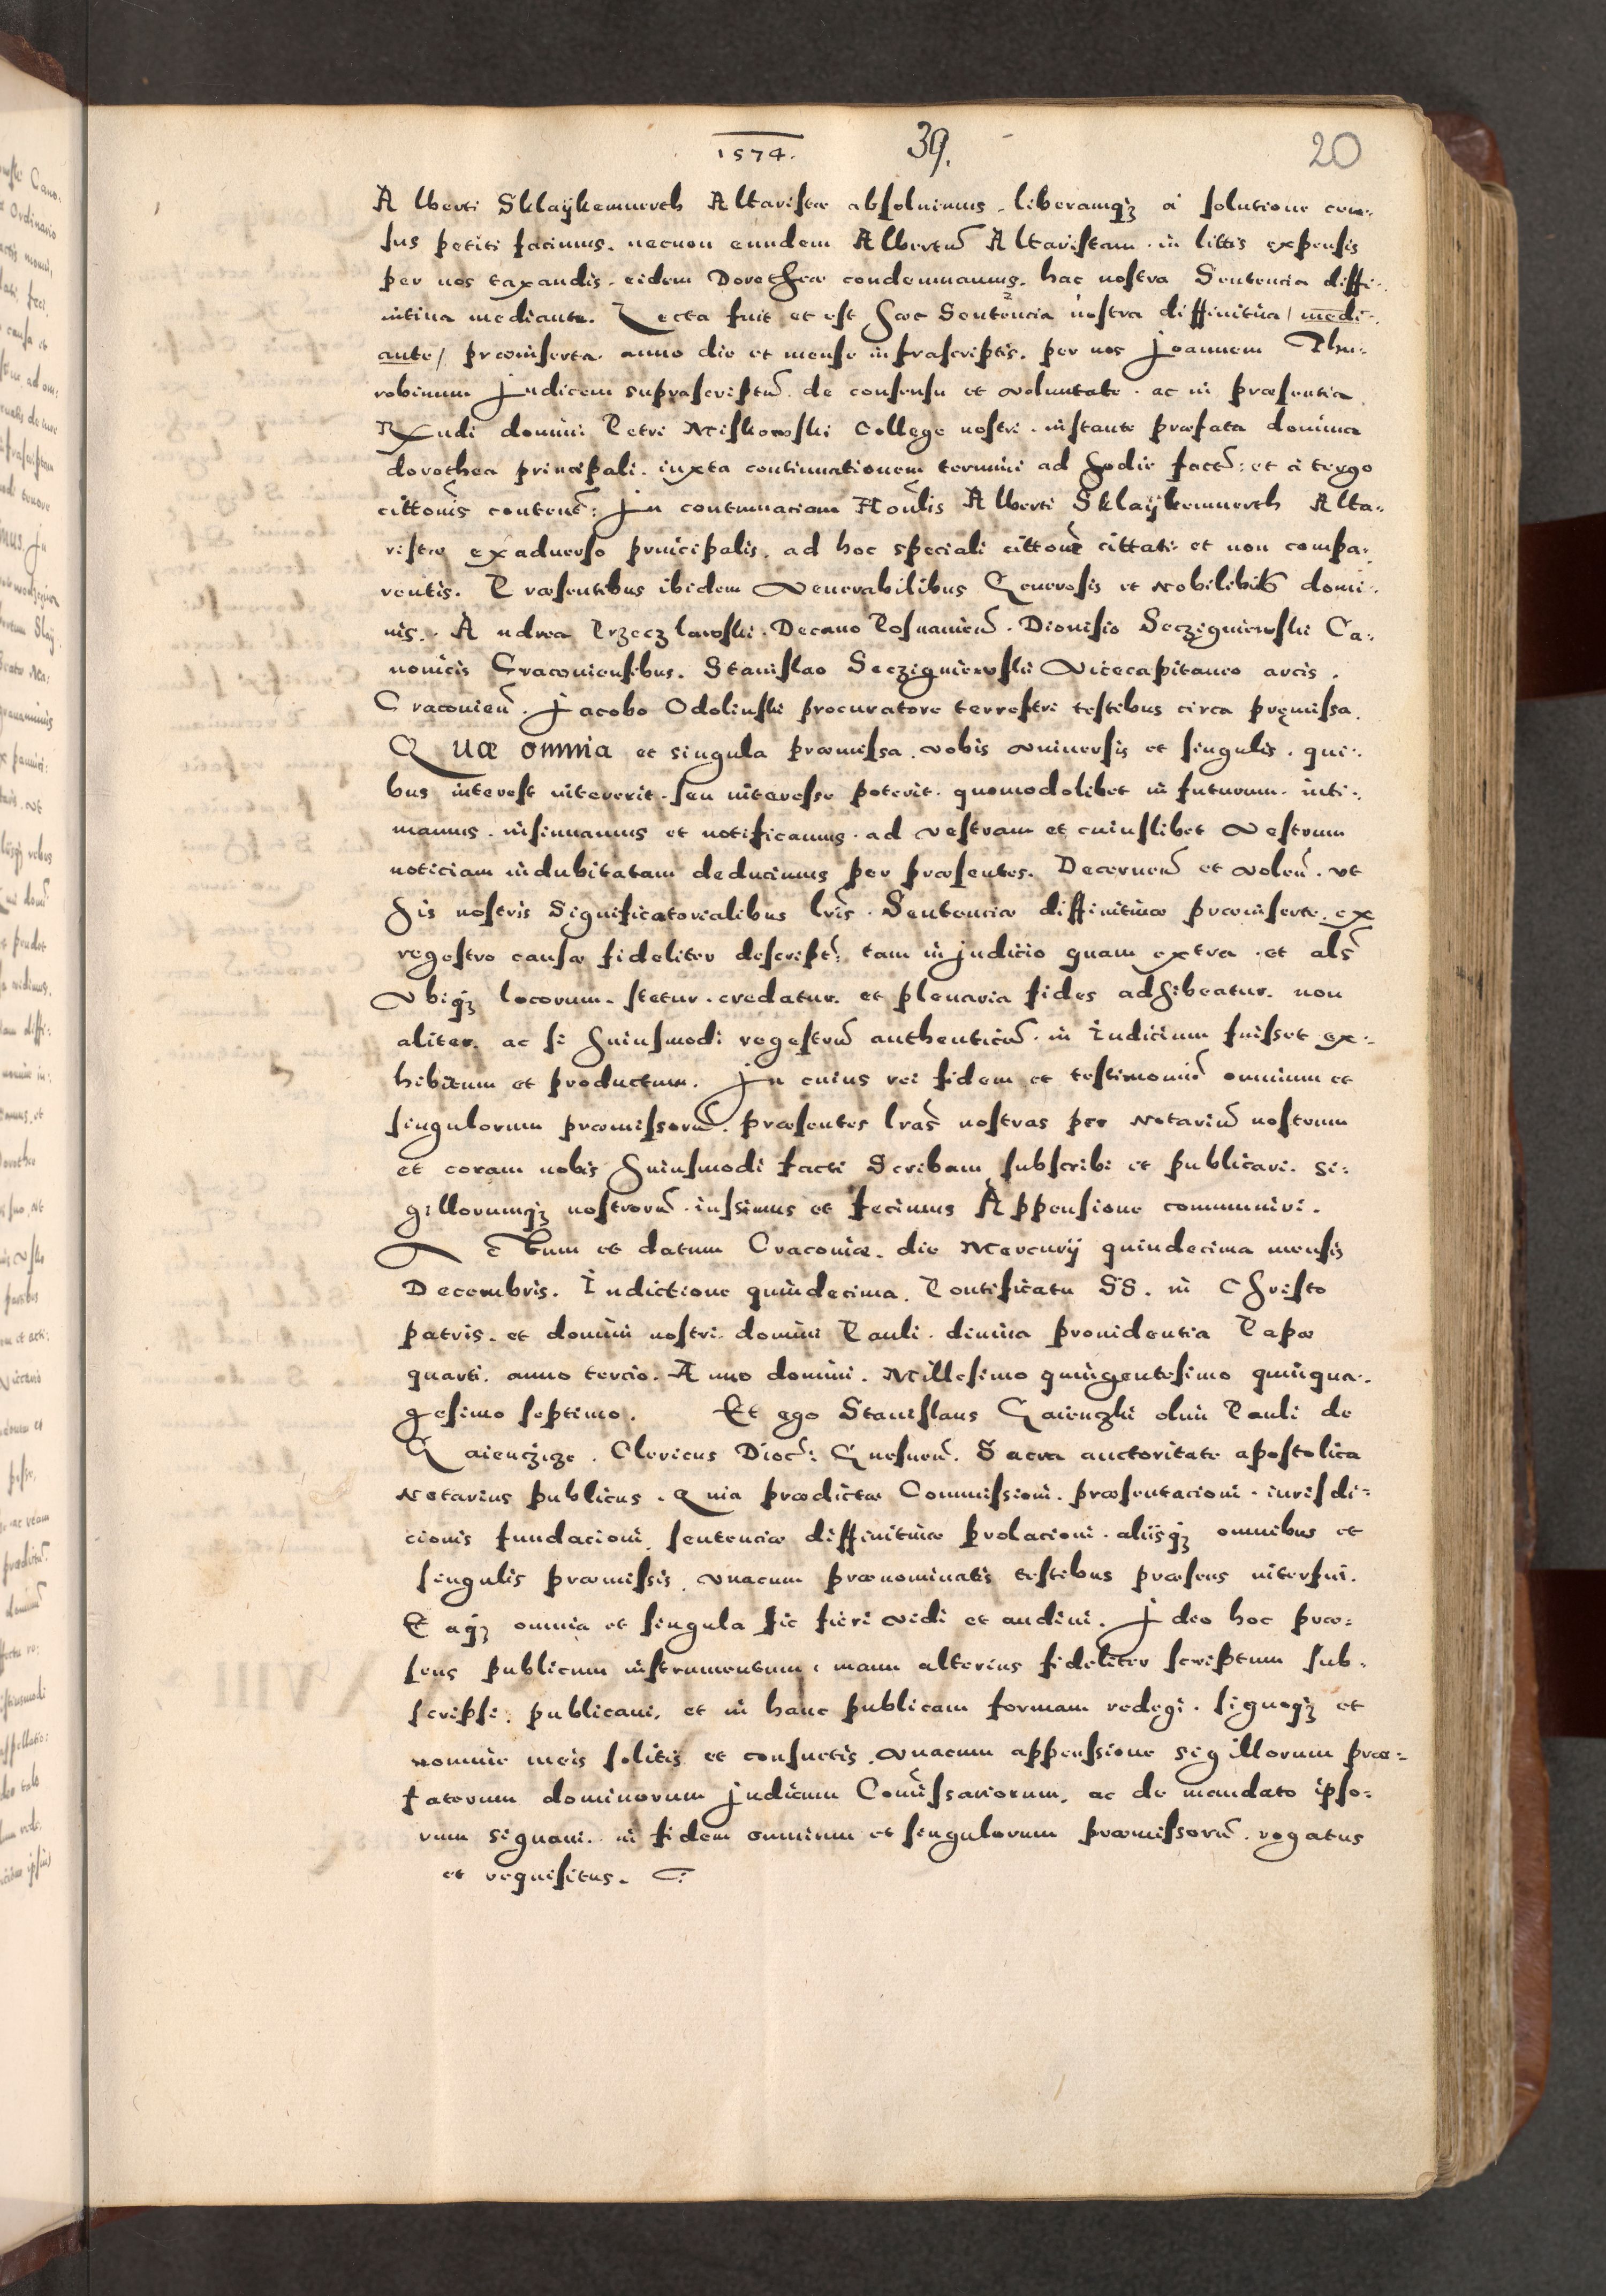 1574. 39. 20
Alberti Sklaÿkemnerth Altaristæ absoluimus. liberamqȝ a solutione cen-
sus petiti facimus. necnon eundem Albertũ Altaristam. in littis expensis
per nos taxandis. eidem Dorotheæ condemnamus. hac nostra Sentencia diffi-
nitiua mediante. Lecta fuit et est hæc Sentencia nostra diffinitiua / medi-
ante / præinserta. anno die et mense infrascriptis. per nos Joannem Thu-
robinum Judicem suprascriptũ. de consensu et voluntate. ac in præsentia
Rxndi domini Petri Miskowski College nostri. instante præfata domina
dorothea principali. iuxta continuationem termini ad hodie factã: et à tergo
cittonis̃ contentã: In contumaciam Honlis̃ Alberti Sklaÿkemnerth Alta-
ristæ exaduerso principalis. ad hoc speciali cittone᷈ cittati et non compa-
rentis. Præsentibus ibidem Venerabilibus Generosis et Nobilibus domi-
nis. Andrea Przeczlawski. Decano Posnanien̄. Dionisio Secziginewski Ca-
nonicis Cracouiensibus. Stanislao Secziginewski Vicecapitaneo arcis.
Cracouien̄. Jacobo Odolinski procuratore terrestri testibus circa pręmissa.
Quæ omnia et singula præmissa. vobis vniuersis et singulis. qui-
bus interest intererit. seu interesse poterit. quomodolibet in futurum. inti-
mamus. insinuamus et notificamus. ad vestram et cuiuslibet vestrum
noticiam indubitatam deducimus per præsentes. Decernen̄ et volen̄. vt
his nostris Significatorialibus lris̃. Sentenciæ diffinitiuæ præinserte. ex
regestro causæ fideliter descript̃: tam in judicio quam extra. et als̃
vbiqȝ locorum. stetur. credatur. et plenaria fides adhibeatur. non
aliter. ac si huiusmodi regestrũ authenticũ. in Iudicium fuisset ex-
hibitum et productum. In cuius rei fidem et testimoniũ omnium et
singulorum præmissorũ. præsentes lras̃ nostras per Notariũ nostrum
et coram nobis huiusmodi facti Scribam subscribi et publicari. si-
gillorumqȝ nostrorũ. iussimus et fecimus Appensione communiri.
Actum et datum Cracouiæ. die Mercurij quindecima mensis
Decembris. Indictione quindecima. Pontificatu SS. in Christo
patris. et domini nostri. domini Pauli. diuina prouidentia Papæ
quarti. anno tercio. Anno domini. Millesimo quingentesimo quinqua-
gesimo septimo. Et ego Stanislaus Gaienczki olim Pauli de
Gaienczicze. Clericus Dioc̃: Gnesnen̄. Sacra auctoritate apostolica
Notarius publicus. Quia prædictæ Commissioni. præsentacioni. iurisdi-
cionis fundacioni. sentenciæ diffinitiuæ prolacioni. aliisqȝ omnibus et
singulis præmissis. vnacum prænominatis testibus præsens interfui.
Eaqȝ omnia et singula sic fieri vidi et audiui. Ideo hoc præ-
sens publicum instrumentum, manu alterius fideliter scriptum sub-
scripsi. publicaui. et in hanc publicam formam redegi. signoqȝ et
nomine meis solitis et consuetis. vnacum appensione sigillorum præ-
fatorum dominorum judicum Com̃issariorum. ac de mandato ipso-
rum signaui. in fidem omnium et singulorum præmissorũ. rogatus
et requisitus.